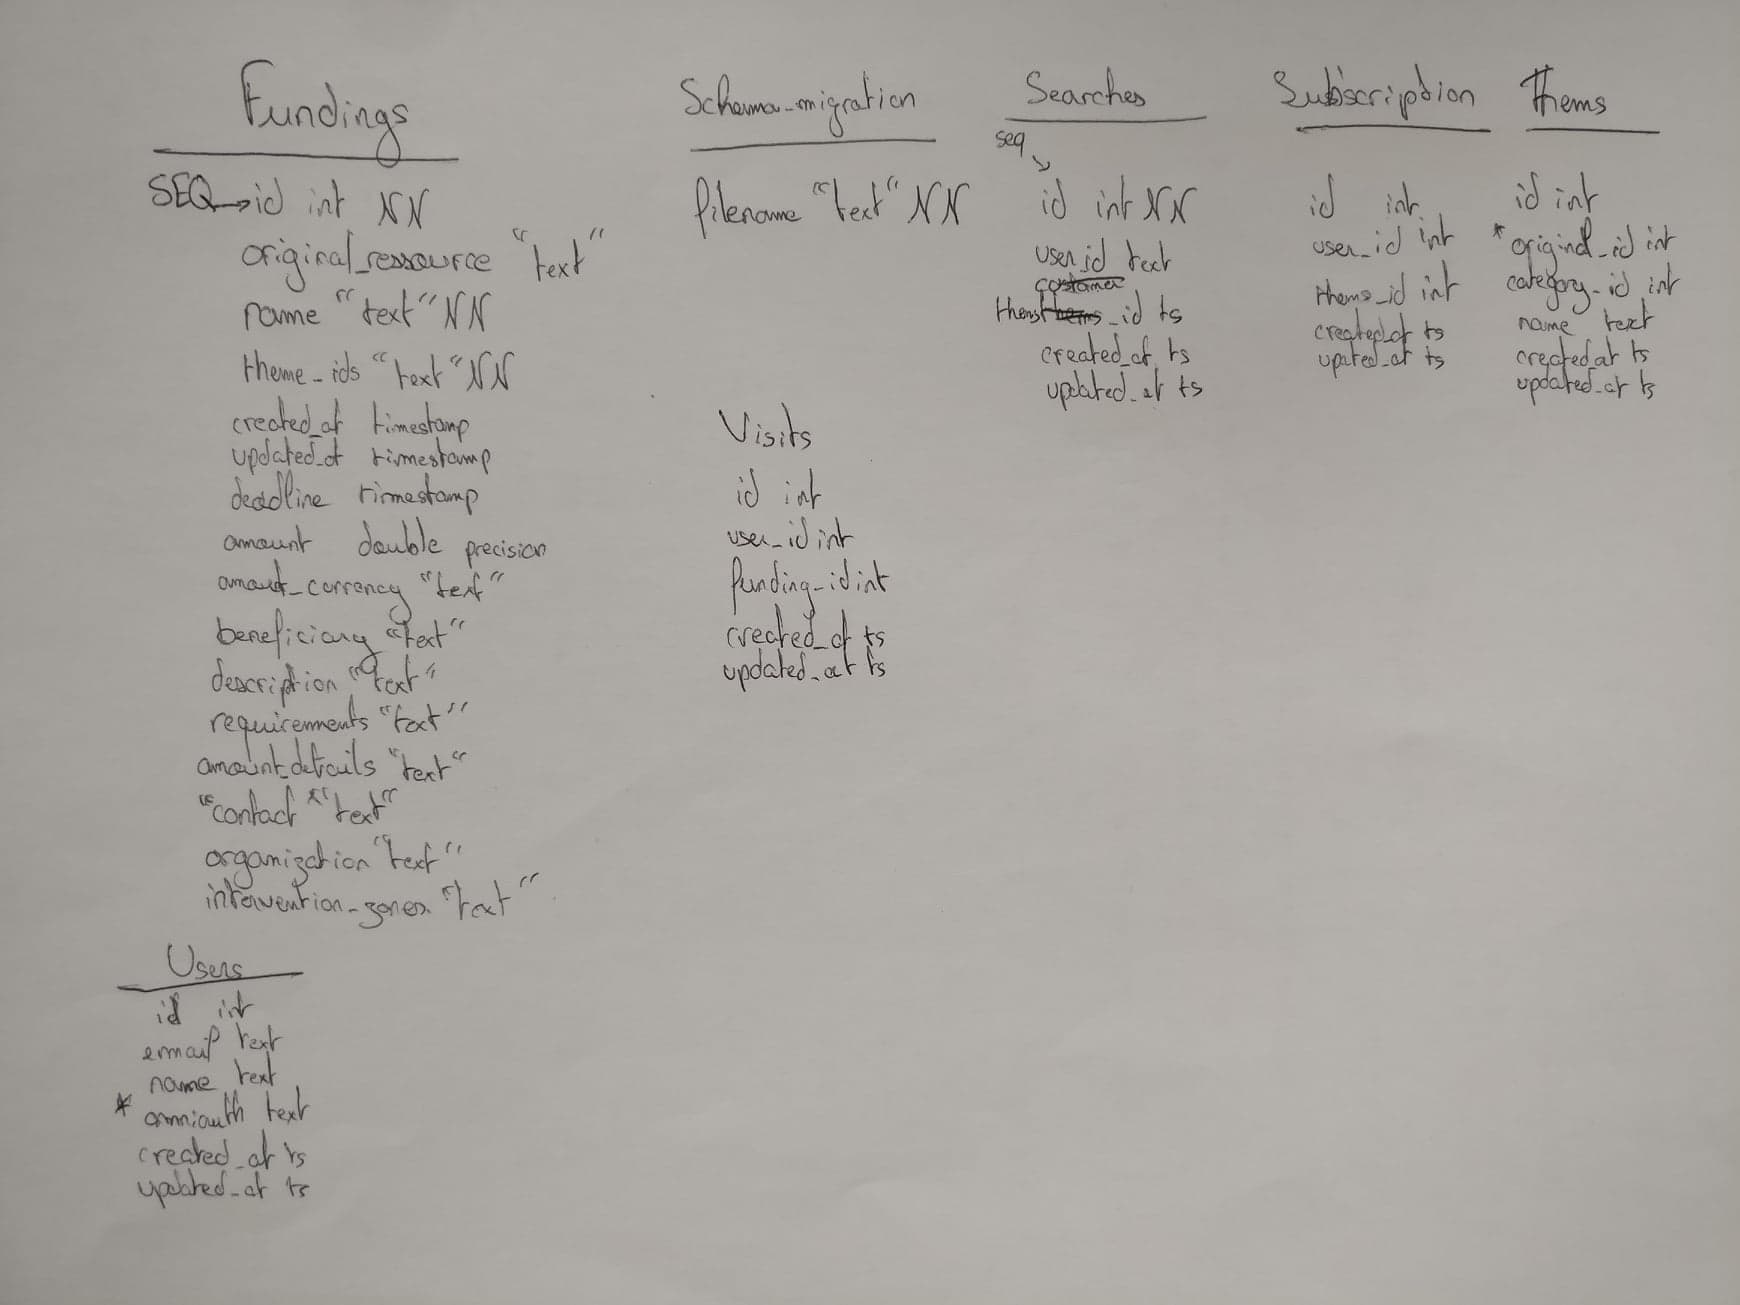 Fundings
SEQ→id int NN
original_ressource "text"
name "text" NN
theme_ids "text" NN
created_at timestamp
updated_at timestamp
deadline timestamp
amount double precision
amout_currency "text"
beneficiary "text"
description "text"
requirements "text"
amount_details "text"
"contact" "text"
organization "text"
intervention_zones "text"
Users
id int
email text
name text
* omniauth text
created_at ts
updated_at ts
Schema_migration
filename "text" NN
Visits
id int
user_id int
funding_id int
created_at ts
updated_at ts
Searches
seq
id int NN
user_id text
costamer
thems_id ts
created_at ts
updated_at ts
Subscription
id int
user_id int
theme_id int
created_at ts
upated_at ts
Thems
id int
* original_id int
category_id int
name text
created_at ts
updated_at ts